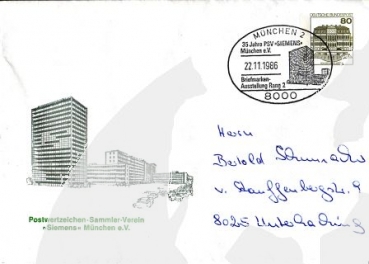 MÜNCHEN 2
35 Jahre PSV »SIEMENS«
München e.V.
22.11.1986
Briefmarken-
Ausstellung Rang 3
8000
DEUTSCHE BUNDESPOST
80
Herrn
Bertold Schumacher
v. Stauffenbergstr. 9
8025 Unterhaching
Postwertzeichen-Sammler-Verein
»Siemens« München e.V.